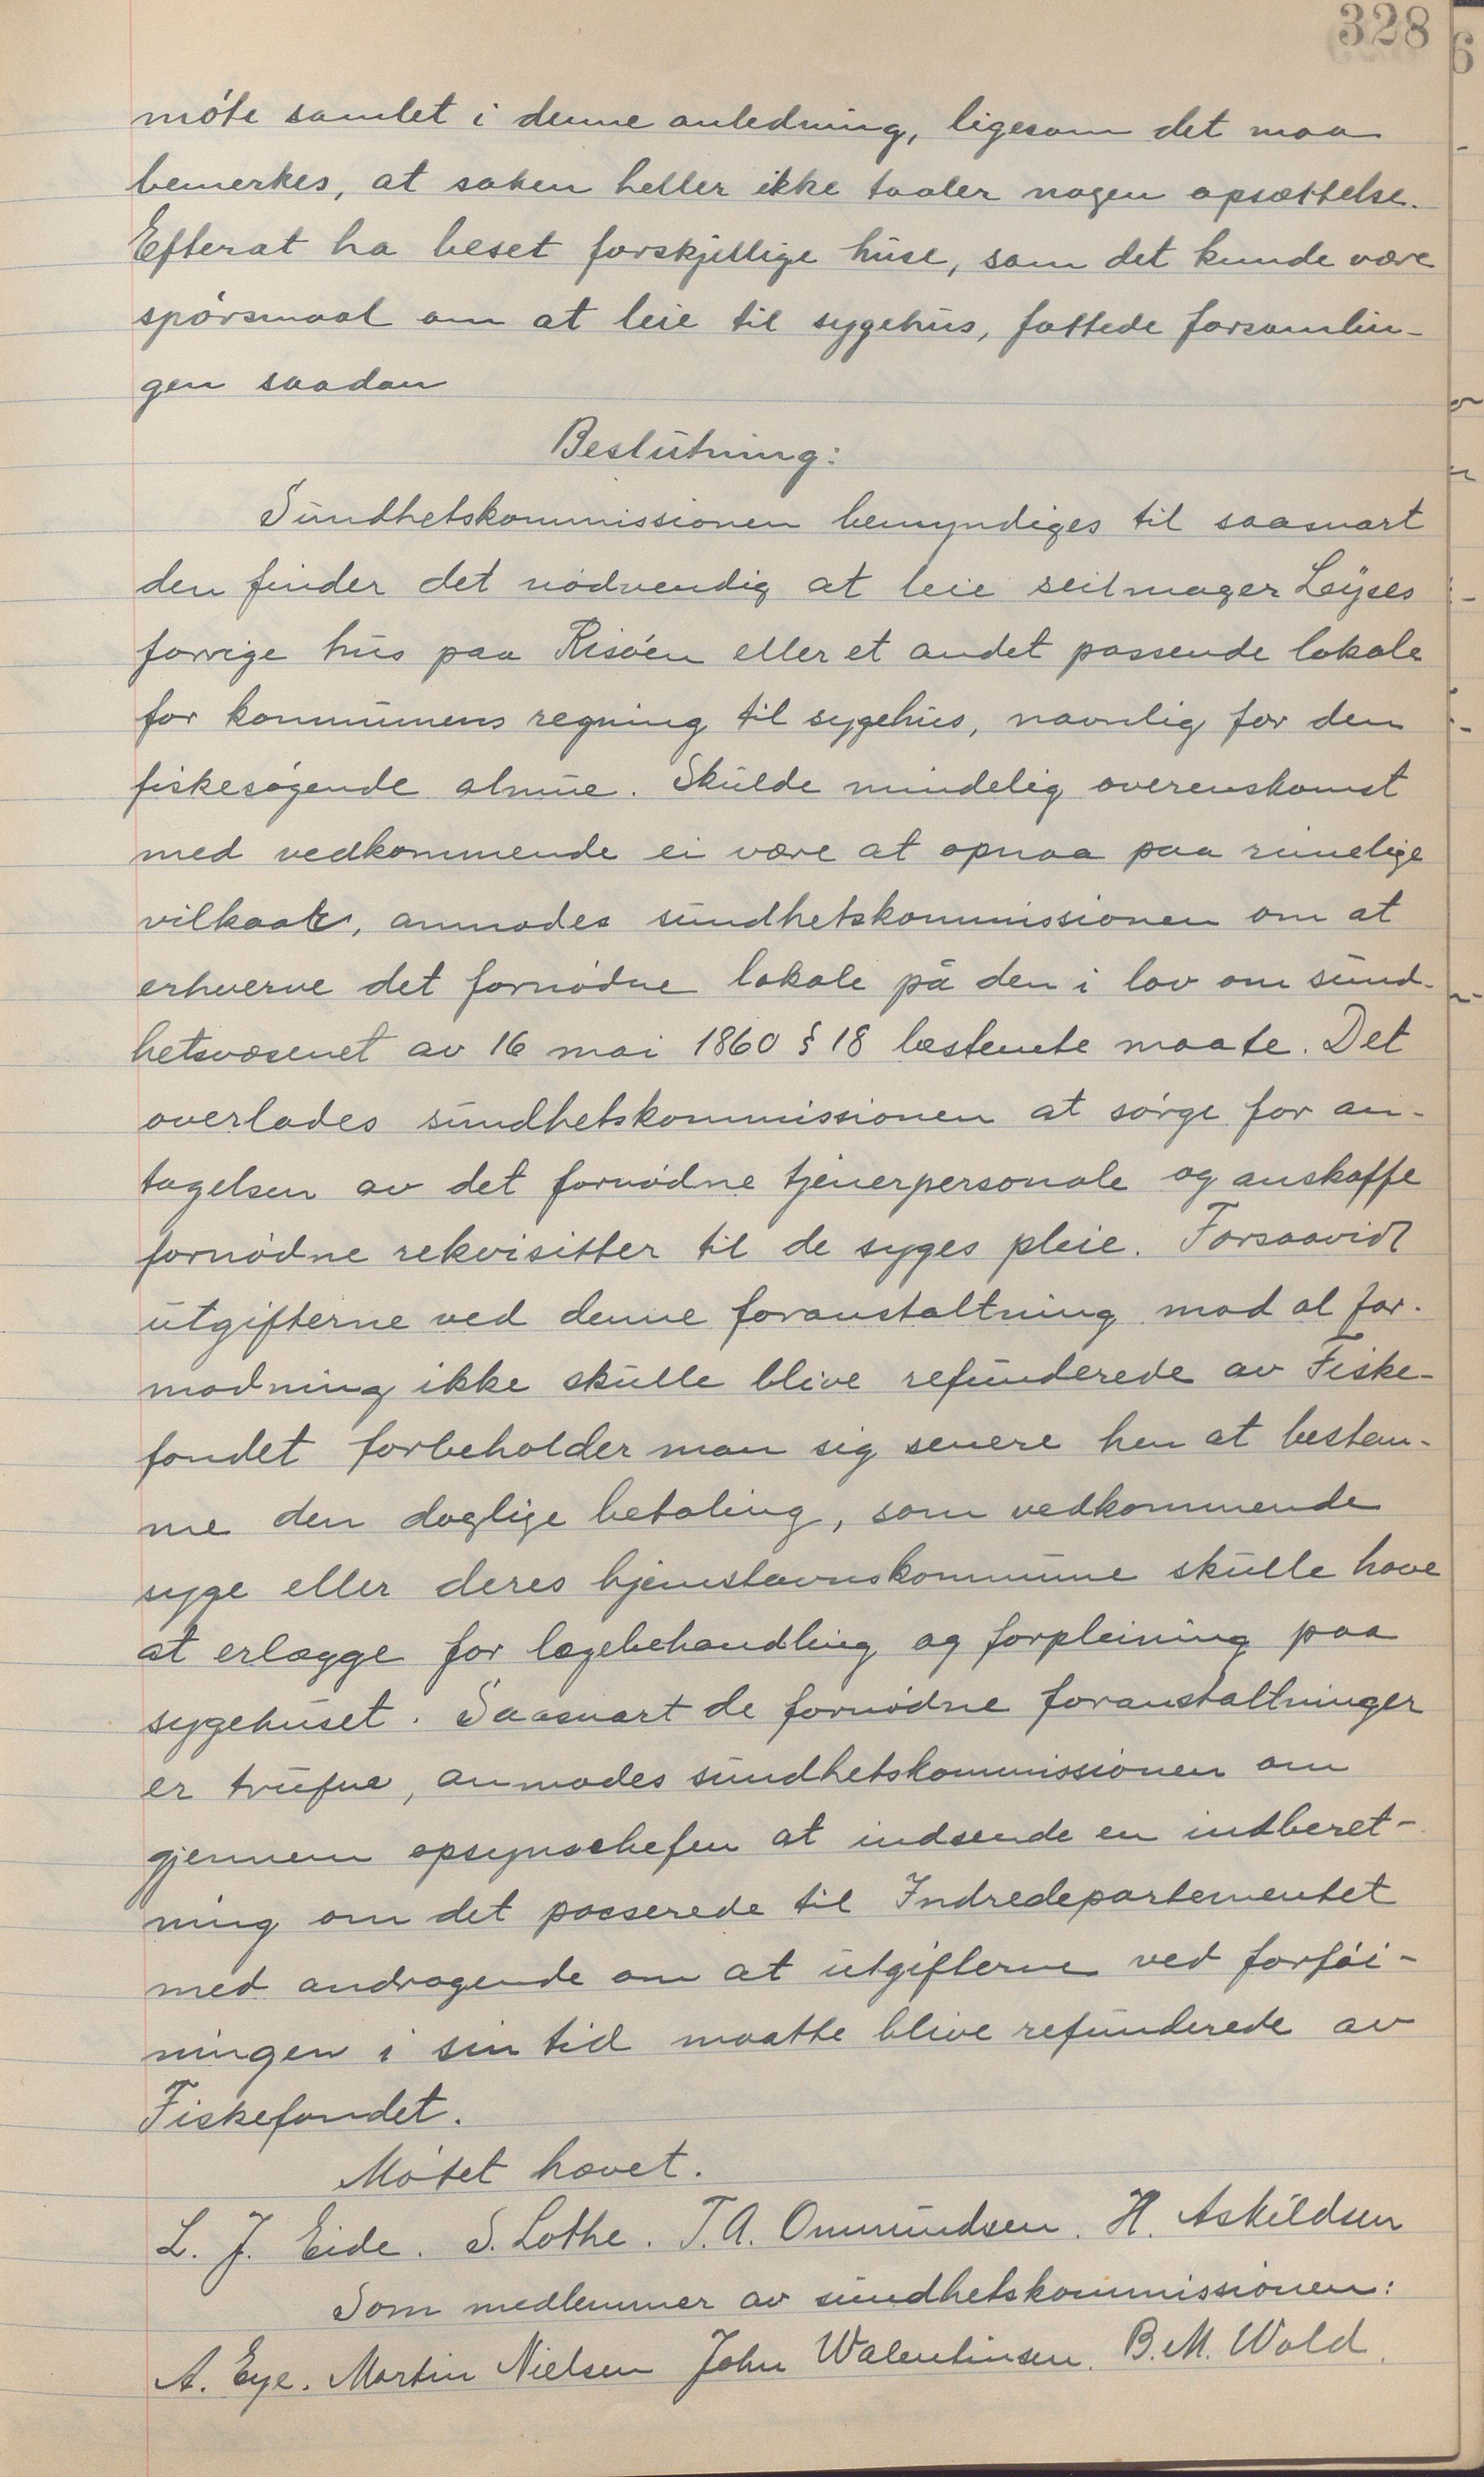 328
møte samlet i denne anledning, ligesom det maa
bemerkes, at saken heller ikke taaler nogen opsættelse.
Efterat ha beset forskjellige huse, som det kunde være
spørsmaal om at leie til sygehus, fattede forsamlin-
gen saadan
Beslutning:
Sundhetskommissionen bemyndiges til saasnart
den finder det nødvendig at leie seilmager Leyses
forrige hus paa Risøen eller et andet passende lokale
for kommunens regning til sygehus, navnlig for den
fiskesøgende almue. Skulde mindelig overenskomst
med vedkommende ei være at opnaa paa rimelige
vilkaar, anmodes sundhetskommissionen om at
erhverve det fornødne lokale på den i lov om sund-
hetsvæsenet av 16 mai 1860 § 18 bestemte maate. Det
overlades sundhetskommissionen at sørge for an-
tagelsen av det fornødne tjenerpersonale og anskaffe
fornødne rekvisitter til de syges pleie. Forsaavidt
utgifterne ved denne foranstaltning mod al for-
modning ikke skulle blive refunderede av Fiske-
fondet forbeholder man sig senere hen at bestem-
me den daglige betaling, som vedkommende
syge eller deres hjemstavnskommune skulle have
at erlægge for lægebehandling og forpleining paa
sygehuset. Saasnart de fornødne foranstaltninger
er trufne, anmodes sundhetskommissionen om
gjennem opsynschefen at indsende en indberet-
ning om det passerede til Indredepartementet
med andragende om at utgifterne ved forføi-
ningen i sin tid maatte blive refunderede av
Fiskefondet.
Møtet hævet.
L. J. Eide. S. Lothe. T. A. Ommundsen. H. Askildsen
Som medlemmer av sundhetskommissionen:
A. Eye. Martin Nielsen John Walentinsen. B. M. Wold.